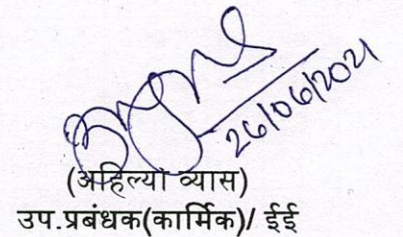 26/06/2021
(अहिल्या व्यास)
उप.प्रबंधक(कार्मिक)/ ईई